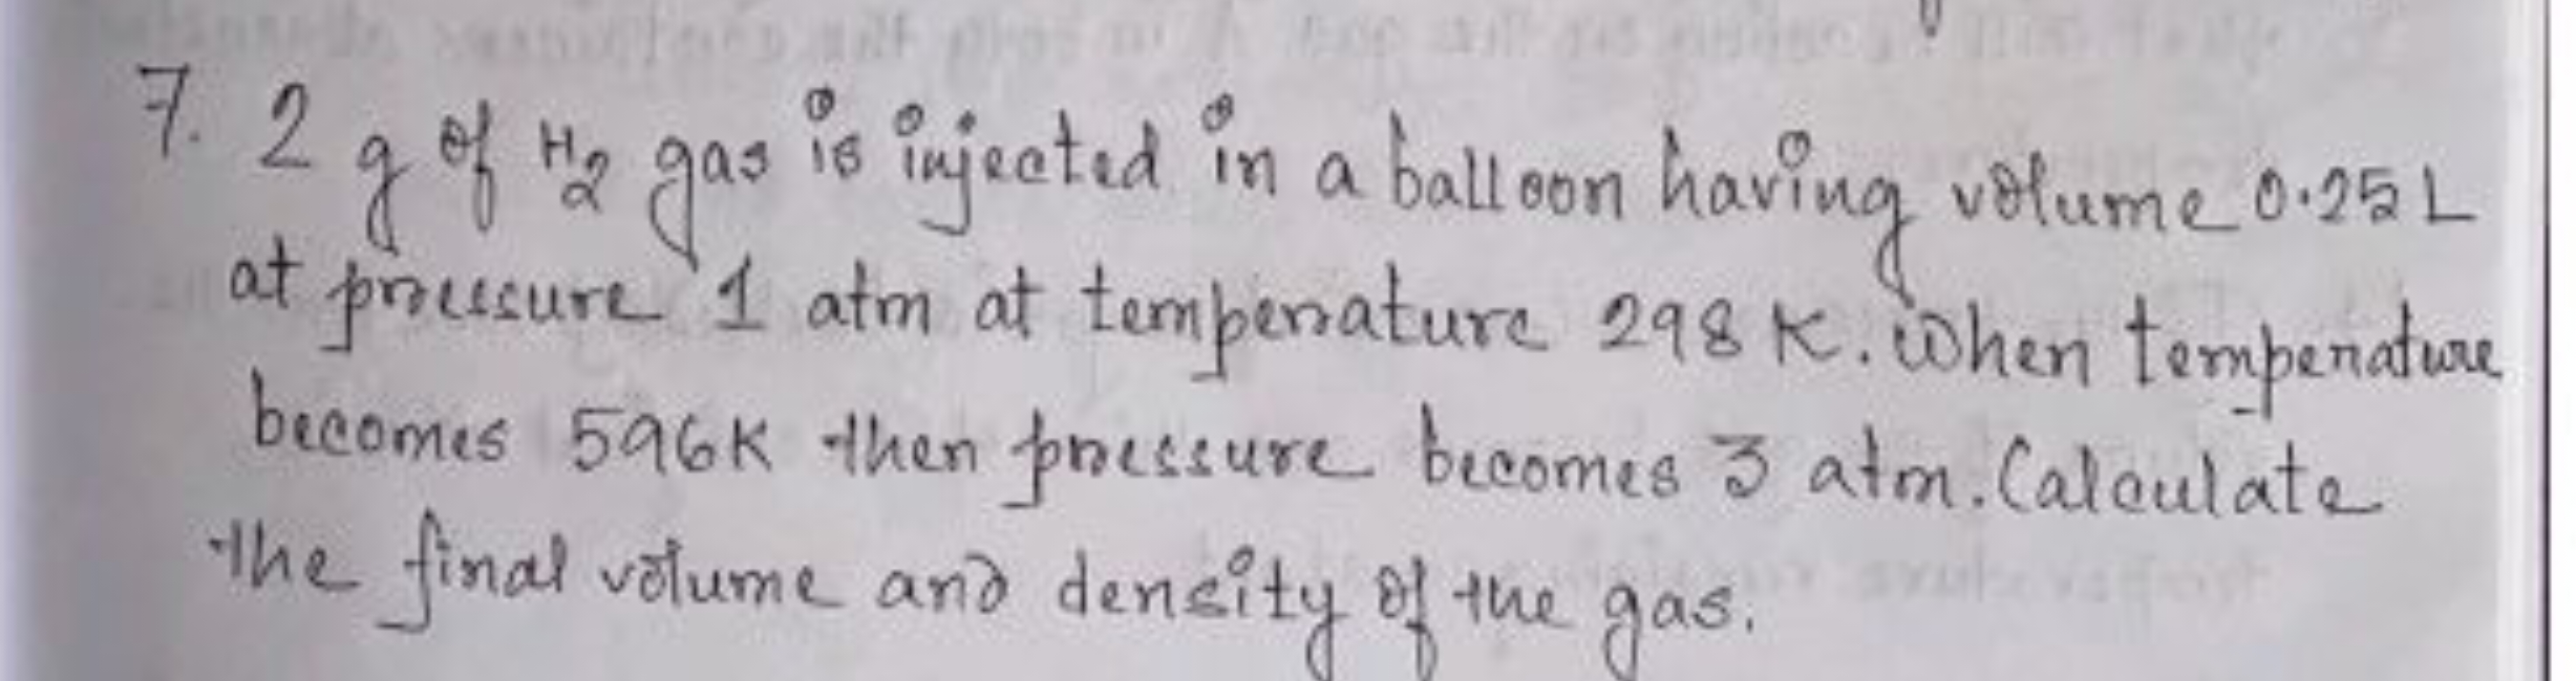 7. 2 g of H₂ gas is injected in a balloon having volume 0.25 L
at pressure 1 atm at temperature 298 K. When temperature
becomes 596K then pressure becomes 3 atm. Calculate
the final volume and density of the gas.